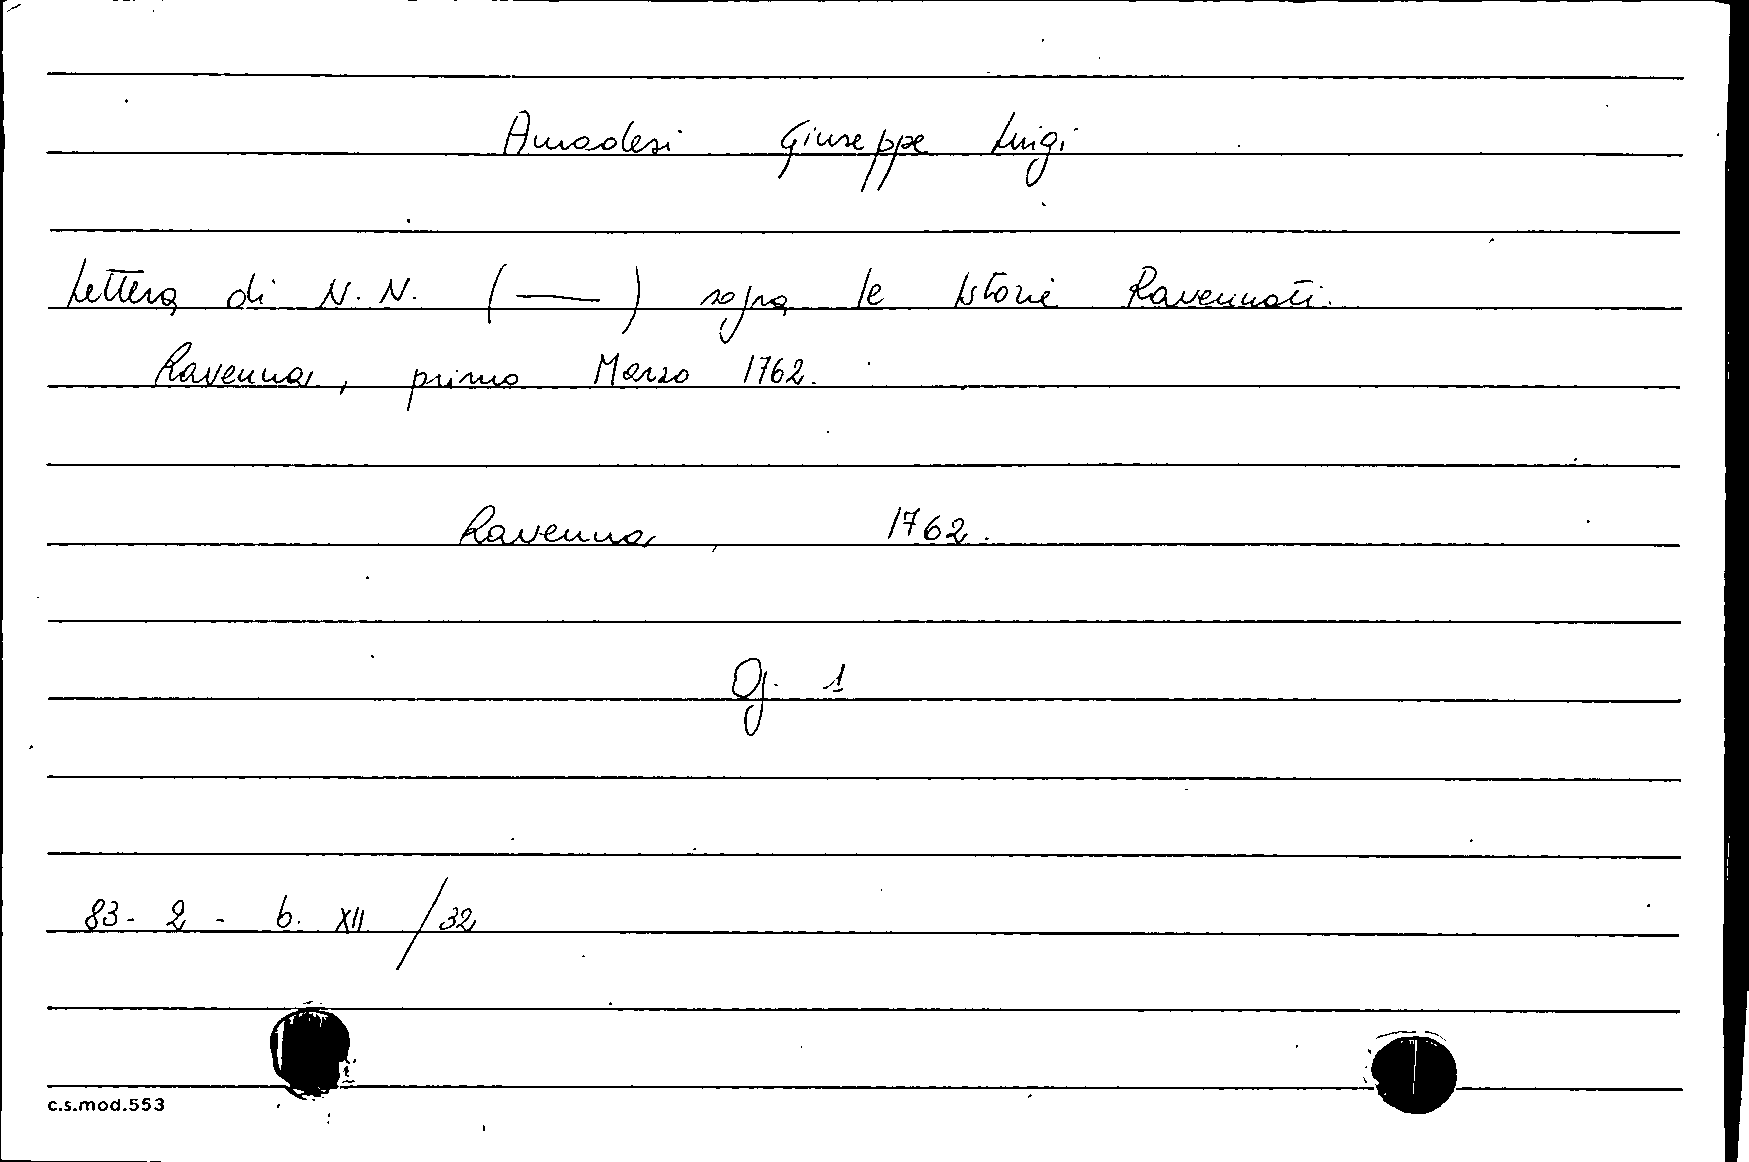 Amadesi Giuseppe Luigi
Lettera di N. N. (——) sopra le Istorie Ravennati.
Ravenna, primo Marzo 1762.
Ravenna, 1762.
1
83-2-b. XII/32
c.s.mod.553